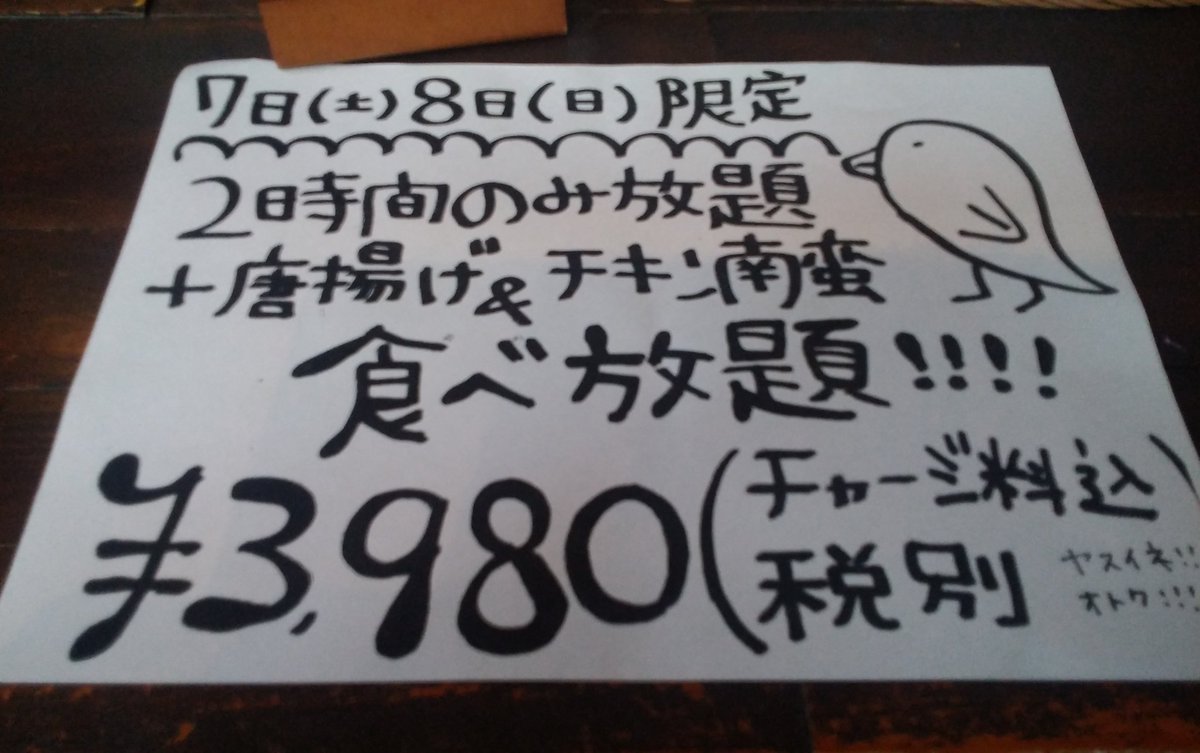 7日(土)8日(日)限定
2時間のみ放題
+唐揚げ&チキン南蛮
食べ放題!!!!
¥3,980(チャージ料込)
税別
ヤスイネ!!
オトク!!!